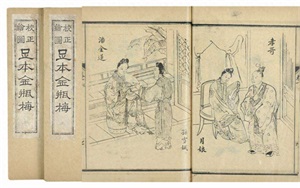 校正
繪圖
足本金瓶梅
校正
繪圖
足本金瓶梅
孝哥
月娘
潘金蓮